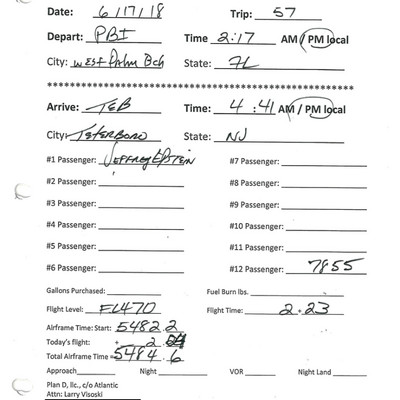 Date: 6/17/18 Trip: 57
Depart: PBI Time 2:17 AM / PM local
City: West Palm Bch State: FL
********************************************************
Arrive: TEB Time: 4:41 AM / PM local
City: Teterboro State: NJ
#1 Passenger: Jeffrey Epstein #7 Passenger:
#2 Passenger: #8 Passenger:
#3 Passenger: #9 Passenger:
#4 Passenger: #10 Passenger:
#5 Passenger: #11 Passenger:
#6 Passenger: #12 Passenger: 7855
Gallons Purchased: Fuel Burn lbs.
Flight Level: FL470 Flight Time: 2.23
Airframe Time: Start: 5482.2
Today's flight: + 2.
Total Airframe Time = 5484.6
Approach Night VOR Night Land
Plan D, llc., c/o Atlantic
Attn: Larry Visoski